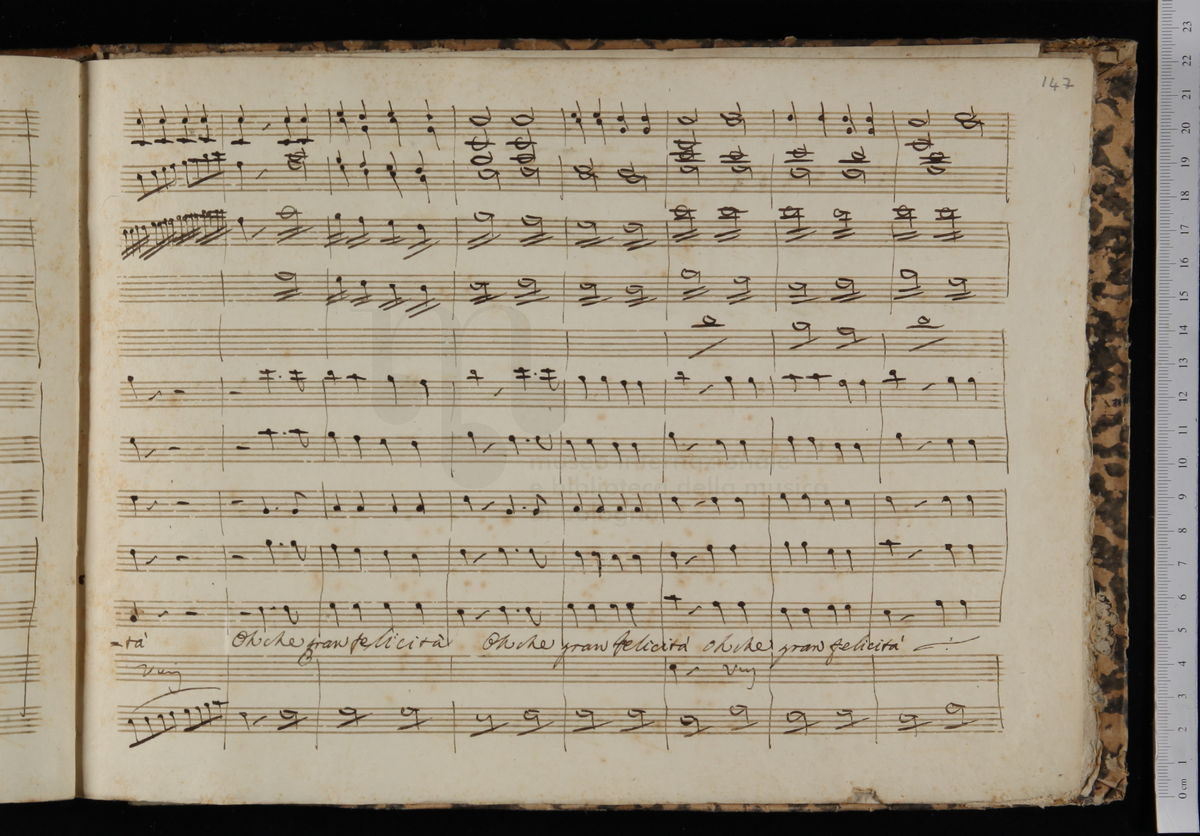 147
-tà Oh che gran felicità Oh che gran felicità oh che gran felicità
museo internazionale
e biblioteca della musica
di bologna
23
22
21
20
19
18
17
16
15
14
13
12
11
10
9
8
7
6
5
4
3
2
1
0 cm